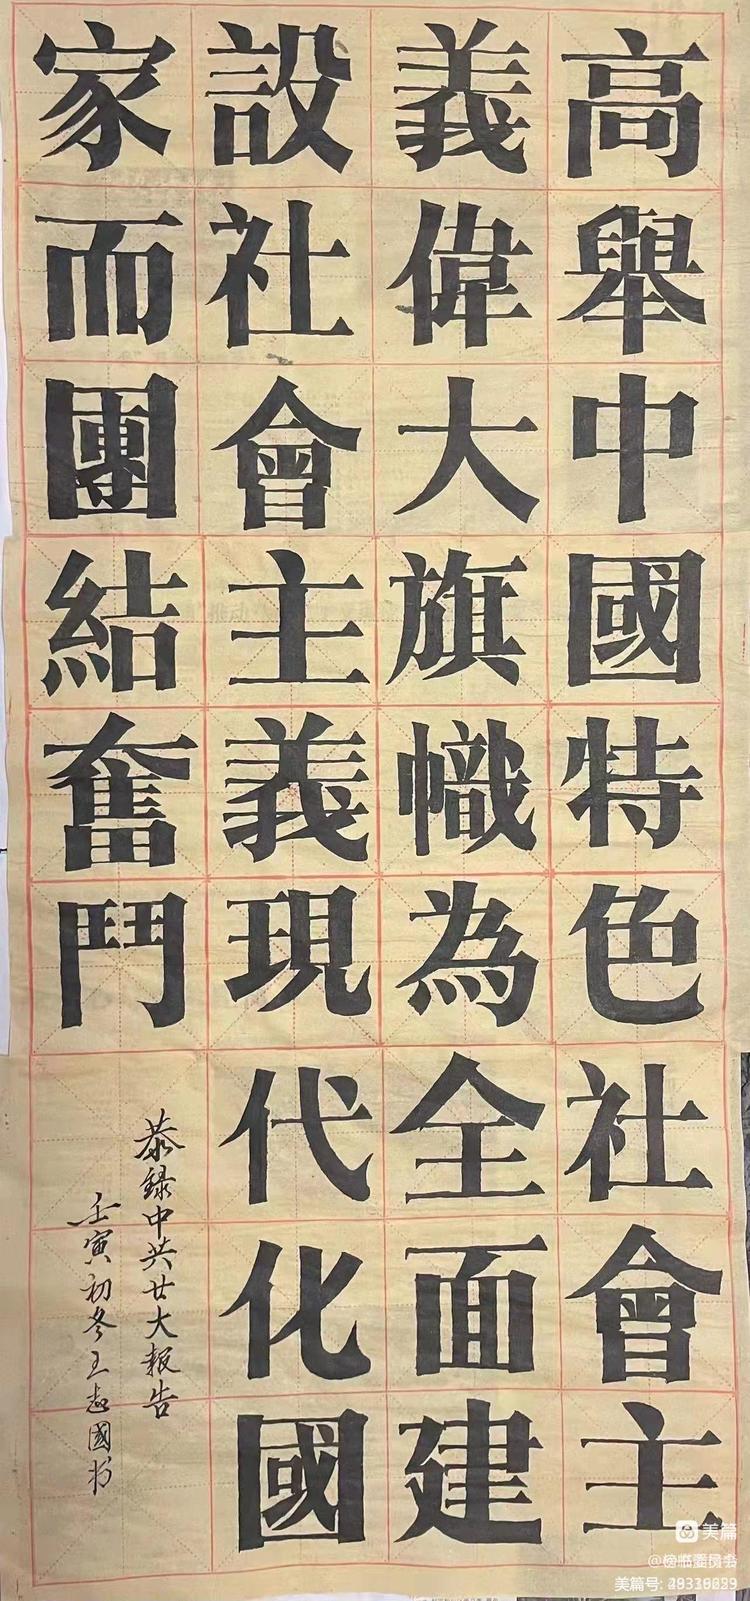 高舉中國特色社會主
義偉大旗幟為全面建
設社會主義現代化國
家而團結奮鬥
恭錄中共廿大報告
壬寅初冬王志國书
美篇
美篇号: